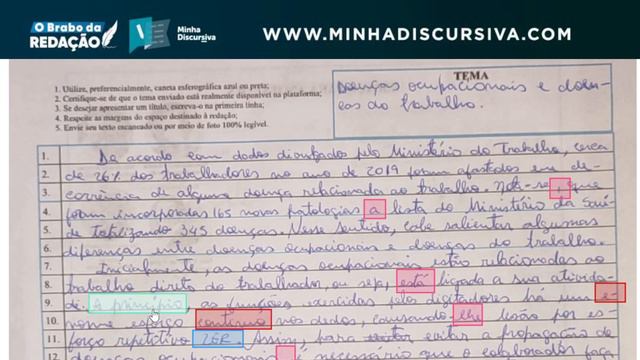 O Brabo da REDAÇÃO
Minha Discursiva
WWW.MINHADISCURSIVA.COM
1. Utilize, preferencialmente, caneta esferográfica azul ou preta;
2. Certifique-se de que o tema enviado está realmente disponível na plataforma;
3. Se desejar apresentar um título, escreva-o na primeira linha;
4. Respeite as margens do espaço destinado à redação;
5. Envie seu texto escaneado ou por meio de foto 100% legível.
TEMA
Doenças ocupacionais e doen-
ças do trabalho.
1. De acordo com dados divulgados pelo Ministério do Trabalho, cerca
2. de 26% dos trabalhadores no ano de 2019 foram afastados em de-
3. corrência de alguma doença relacionada ao trabalho. Nota-se, que
4. foram incorporadas 165 novas patologias a lista do Ministério da Saú-
5. de totalizando 345 doenças. Nesse sentido, cabe salientar algumas
6. diferenças entre doenças ocupacionais e doenças do trabalho.
7. Inicialmente, as doenças ocupacionais estão relacionadas ao
8. trabalho direto do trabalhador, ou seja, está ligada a sua ativida-
9. de. A princípio, as funções exercidas pelos digitadores há um e-
10. norme esforço contínuo nos dedos, causando-lhe lesão por es-
11. forço repetitivo LER. Assim, para evitar a propagação de
12. doenças ocupacionais é necessário que o colaborador faça